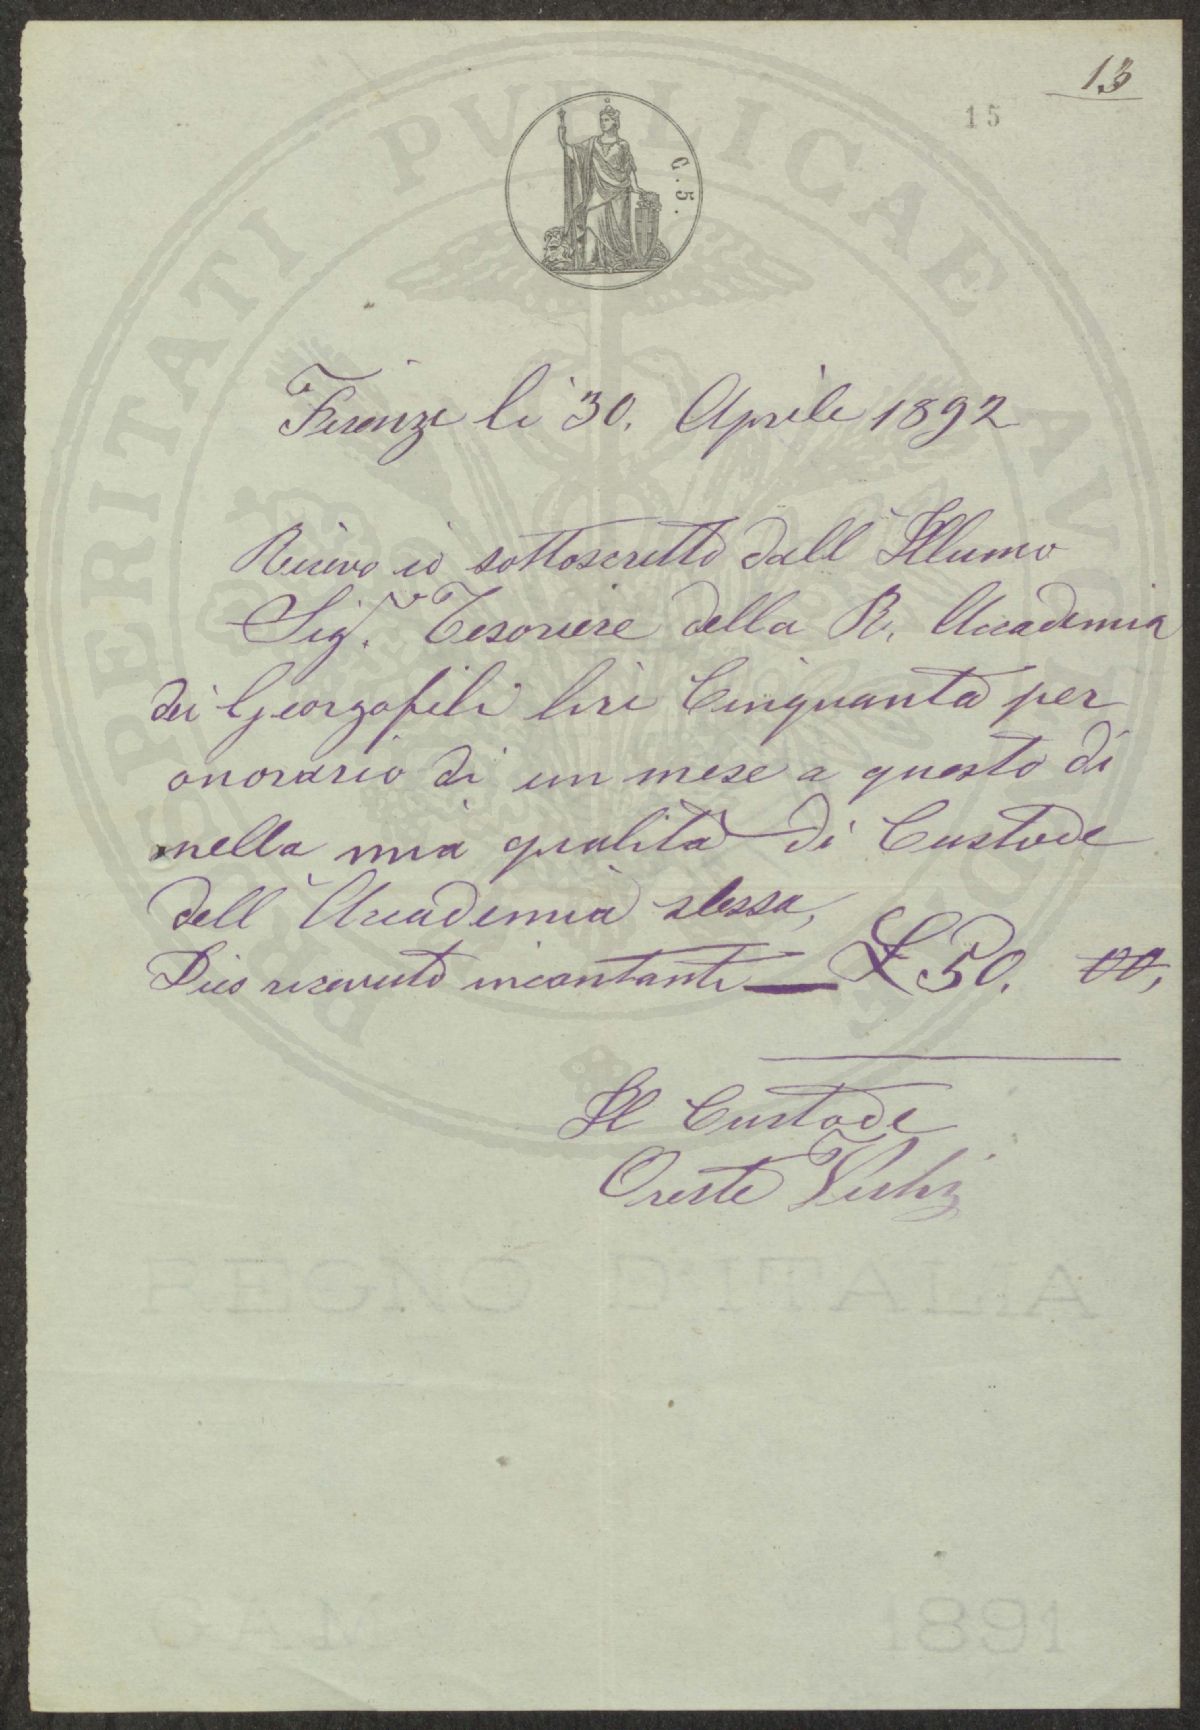 13
15
G. 5.
PROSPERITATI PVBLICAE AVGENDAE
Firenze li 30. Aprile 1892
Ricevo io sottoscritto dall' Illumo
Sigr. Tesoriere della R. Accademia
dei Georgofili lire Cinquanta per
onorario di un mese a questo dì
nella mia qualità di Custode
dell' Accademia stessa,
Dico ricevuto in contanti — £ 50. 00,
Il Custode
Oreste
REGNO D'ITALIA
1891